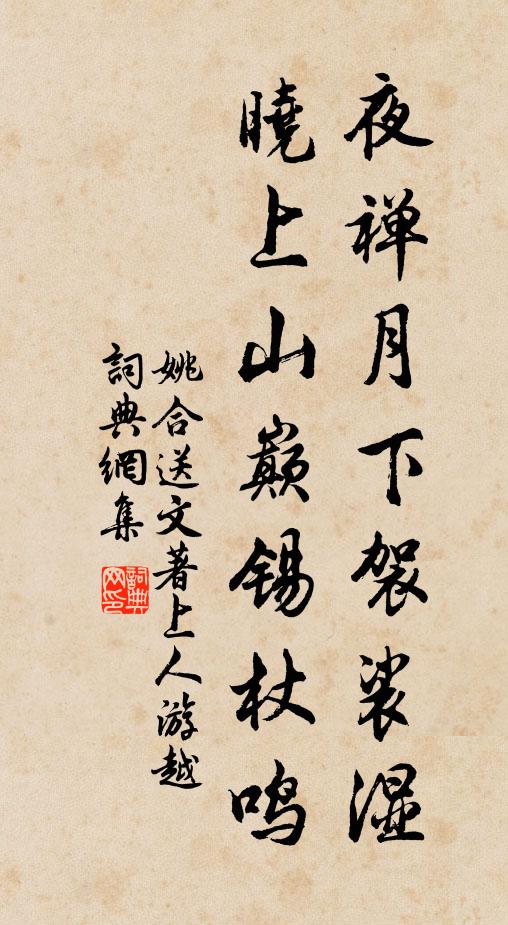 夜禅月下袈裟湿
曉上山巅锡杖鸣
姚合送文著上人游越
詞典網集
詞典网印